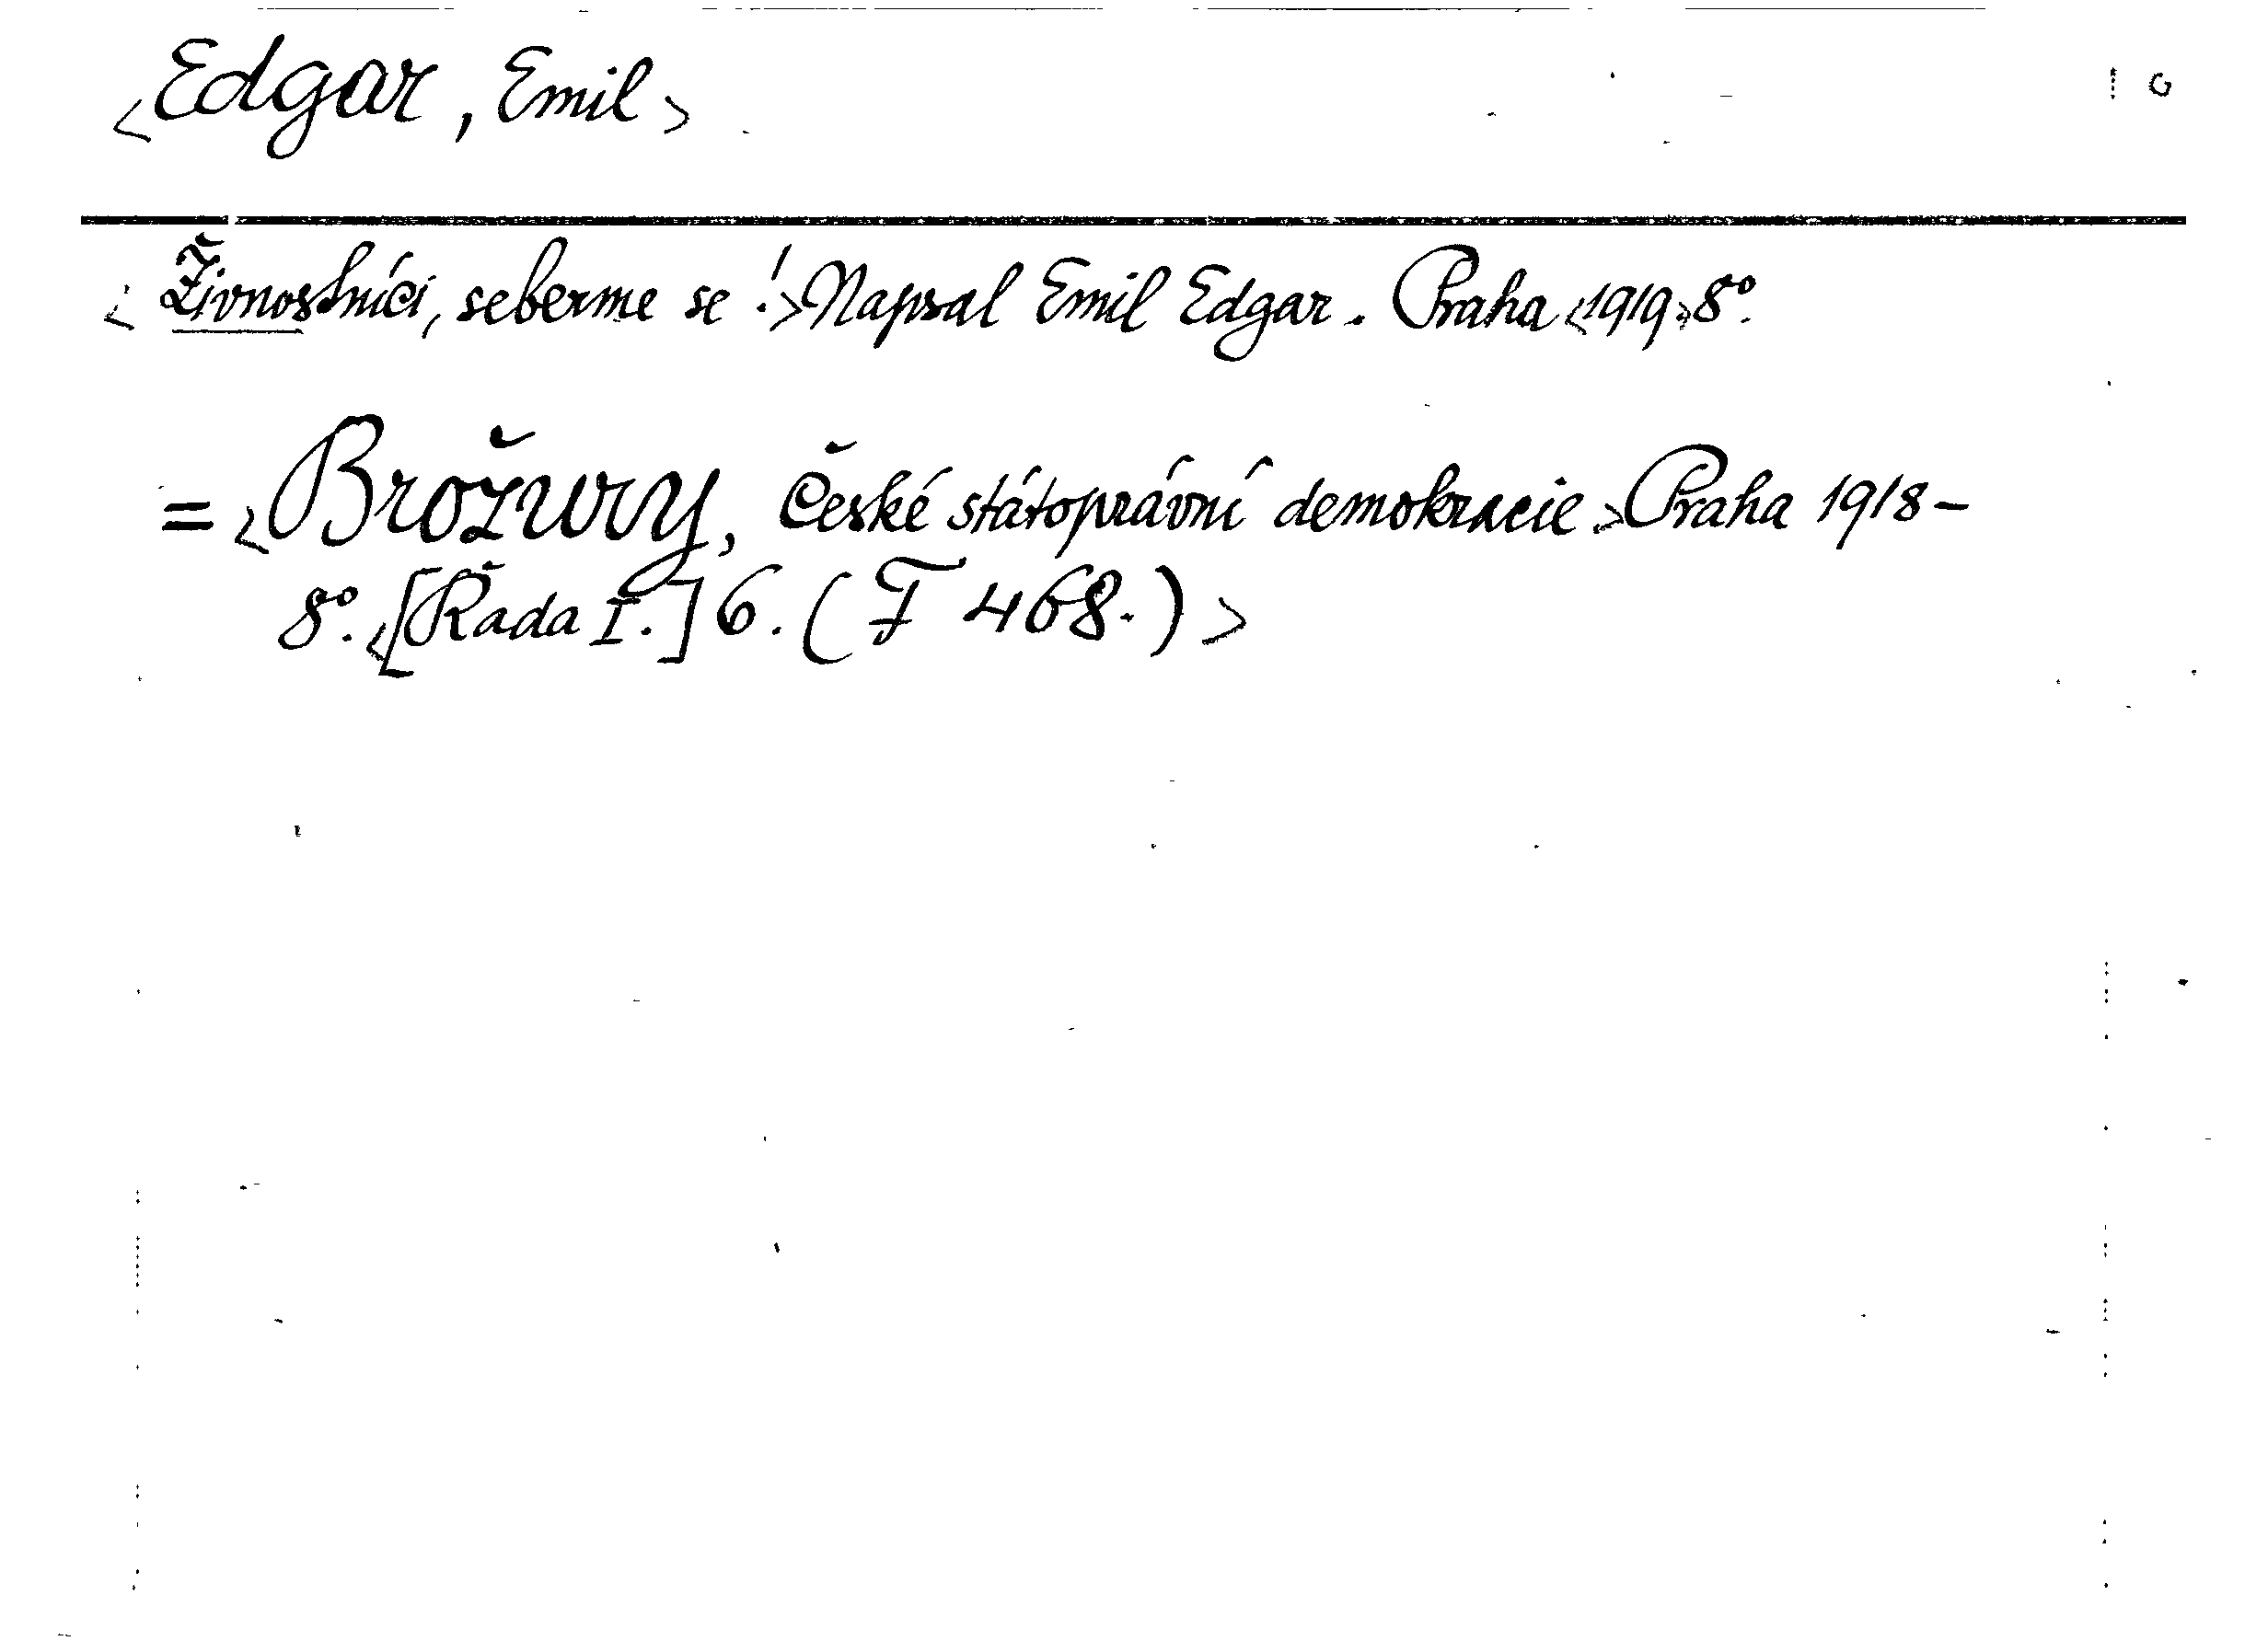 <Edgar, Emil>
<Živnostníci, seberme se!> Napsal Emil Edgar. Praha <1919> 8°.
= <Brožury, České státoprávní demokracie> Praha 1918-
8°. <[Řada I.] 6. (F 468.)>